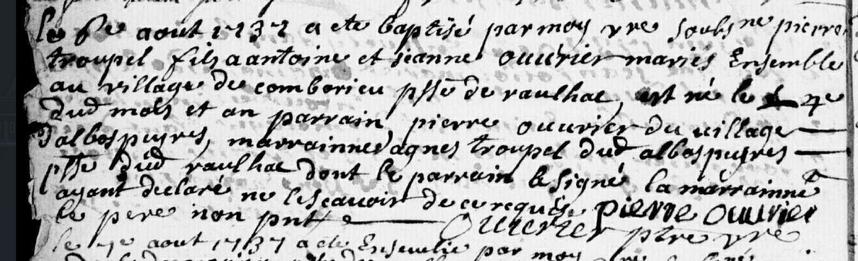 le 6e aout 1737 a ete baptisé par moy vre soubsne pierre
troupel fils a antoine et jeanne ouvrier mariés Ensemble
au village de comborieu psse de raulhac, est né le 4e
dud mois et an parrain pierre ouvrier du village
d'albospuyres, marrainne agnes troupel dud albospuyres
psse dud raulhac dont le parrain a signé la marrainne
ayant declaré ne le scavoir de ce requise pierre ouvrier
le pere non pnt Ouvrier ptre vre
le 7e aout 1737 a ete Ensevelie par moy